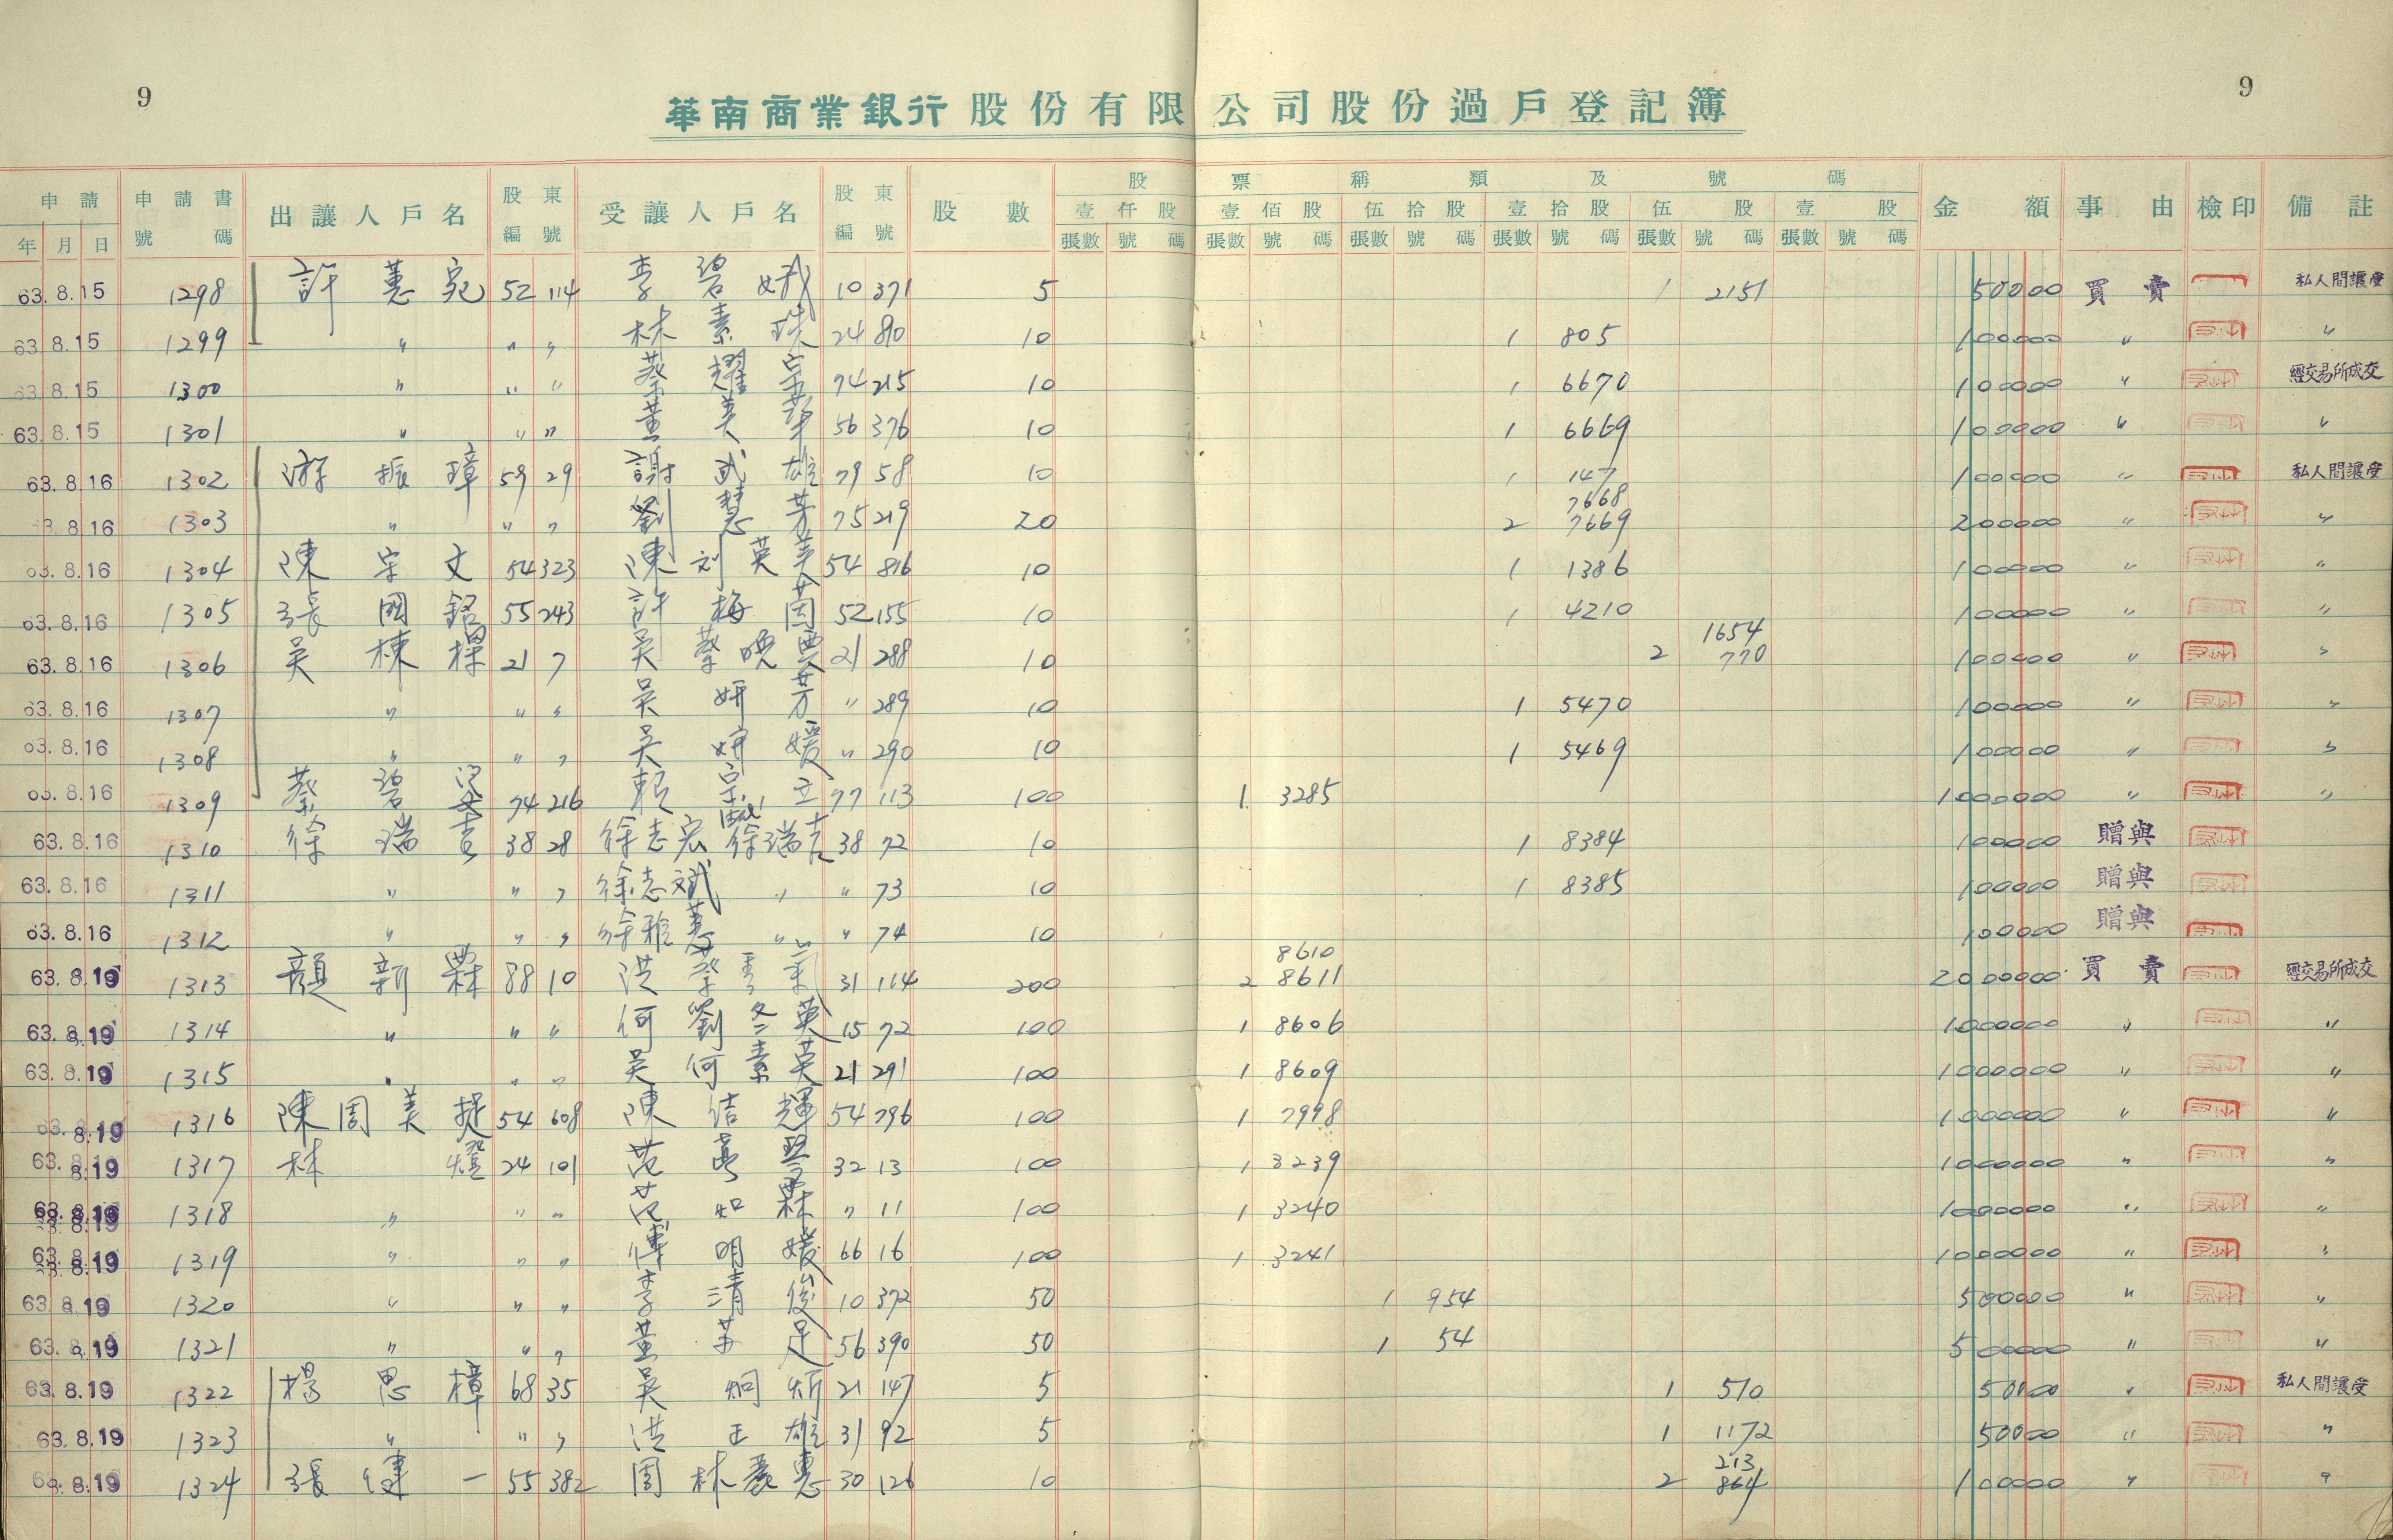 9
華南商業銀行股份有限公司股份過戶登記簿
9
申請 年 月 日 申請書號碼 出讓人戶名 股東編號 受讓人戶名 股東編號 股數 股票稱類及號碼 金額 事由 檢印 備註
壹仟股 壹佰股 伍拾股 壹拾股 伍股 壹股
張數 號碼 張數 號碼 張數 號碼 張數 號碼 張數 號碼 張數 號碼
63.8.15 1298 許蕙宛 52 114 李碧娥 10 371 5 1 2151 50000 買賣 私人間讓受
63.8.15 1299 〃 〃 〃 林素珠 24 810 10 1 805 100000 〃 〃
63.8.15 1300 〃 〃 〃 蔡耀宗 74 215 10 1 6670 100000 〃 經交易所成交
63.8.15 1301 〃 〃 〃 黃美華 56 376 10 1 6669 100000 〃 〃
63.8.16 1302 游振璋 59 29 謝武雄 79 58 10 1 147 100000 〃 私人間讓受
63.8.16 1303 〃 〃 〃 劉慧芳 75 219 20 2 7668 7669 200000 〃 〃
63.8.16 1304 陳宗文 54 323 陳刘英美 54 816 10 1 1386 100000 〃 〃
63.8.16 1305 張國銘 55 243 許梅茵 52 155 10 1 4210 100000 〃 〃
63.8.16 1306 吳棟樑 21 7 吳蔡晚 21 288 10 2 1654 770 100000 〃 〃
63.8.16 1307 〃 〃 〃 吳妍芳 〃 289 10 1 5470 100000 〃 〃
63.8.16 1308 〃 〃 〃 吳妍媛 〃 290 10 1 5469 100000 〃 〃
63.8.16 1309 蔡碧 74 216 賴宗立 77 113 100 1 3285 1000000 〃 〃
63.8.16 1310 徐瑞吉 38 28 徐志宏 徐瑞吉 38 72 10 1 8384 100000 贈與
63.8.16 1311 〃 〃 〃 徐志斌 〃 〃 73 10 1 8385 100000 贈與
63.8.16 1312 〃 〃 〃 徐雅蕙 〃 〃 74 10 100000 贈與
63.8.19 1313 顏新霖 88 10 洪蔡 31 114 200 2 8610 8611 2000000 買賣 經交易所成交
63.8.19 1314 〃 〃 〃 何劉冬英 15 72 100 1 8606 1000000 〃 〃
63.8.19 1315 〃 〃 〃 吳何素英 21 291 100 1 8609 1000000 〃 〃
63.8.19 1316 陳周美捉 54 608 陳佶輝 54 796 100 1 7998 1000000 〃 〃
63.8.19 1317 林燈 24 101 范 32 13 100 1 3239 1000000 〃 〃
63.8.19 1318 〃 〃 〃 范如霖 〃 11 100 1 3240 1000000 〃 〃
63.8.19 1319 〃 〃 〃 傅明媛 66 16 100 1 3241 1000000 〃 〃
63.8.19 1320 〃 〃 〃 李清俊 10 372 50 1 954 500000 〃 〃
63.8.19 1321 〃 〃 〃 黃足 56 390 50 1 54 500000 〃 〃
63.8.19 1322 楊思樟 68 35 吳炯炘 21 147 5 1 510 50000 〃 私人間讓受
63.8.19 1323 〃 〃 〃 洪正雄 31 92 5 1 1172 50000 〃 〃
63.8.19 1324 張健一 55 382 周林惠 30 126 10 2 213 864 100000 〃 〃